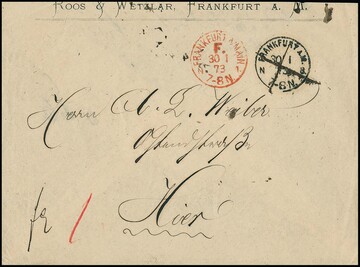 Roos & Wetzlar, Frankfurt a. M.
FRANKFURT A. MAIN
F.
30 1
73
7-8 N.
FRANKFURT A.M.
30 1
7-8 N.
Herrn A. L. Weiber
Ostendstraße
Hier
fr